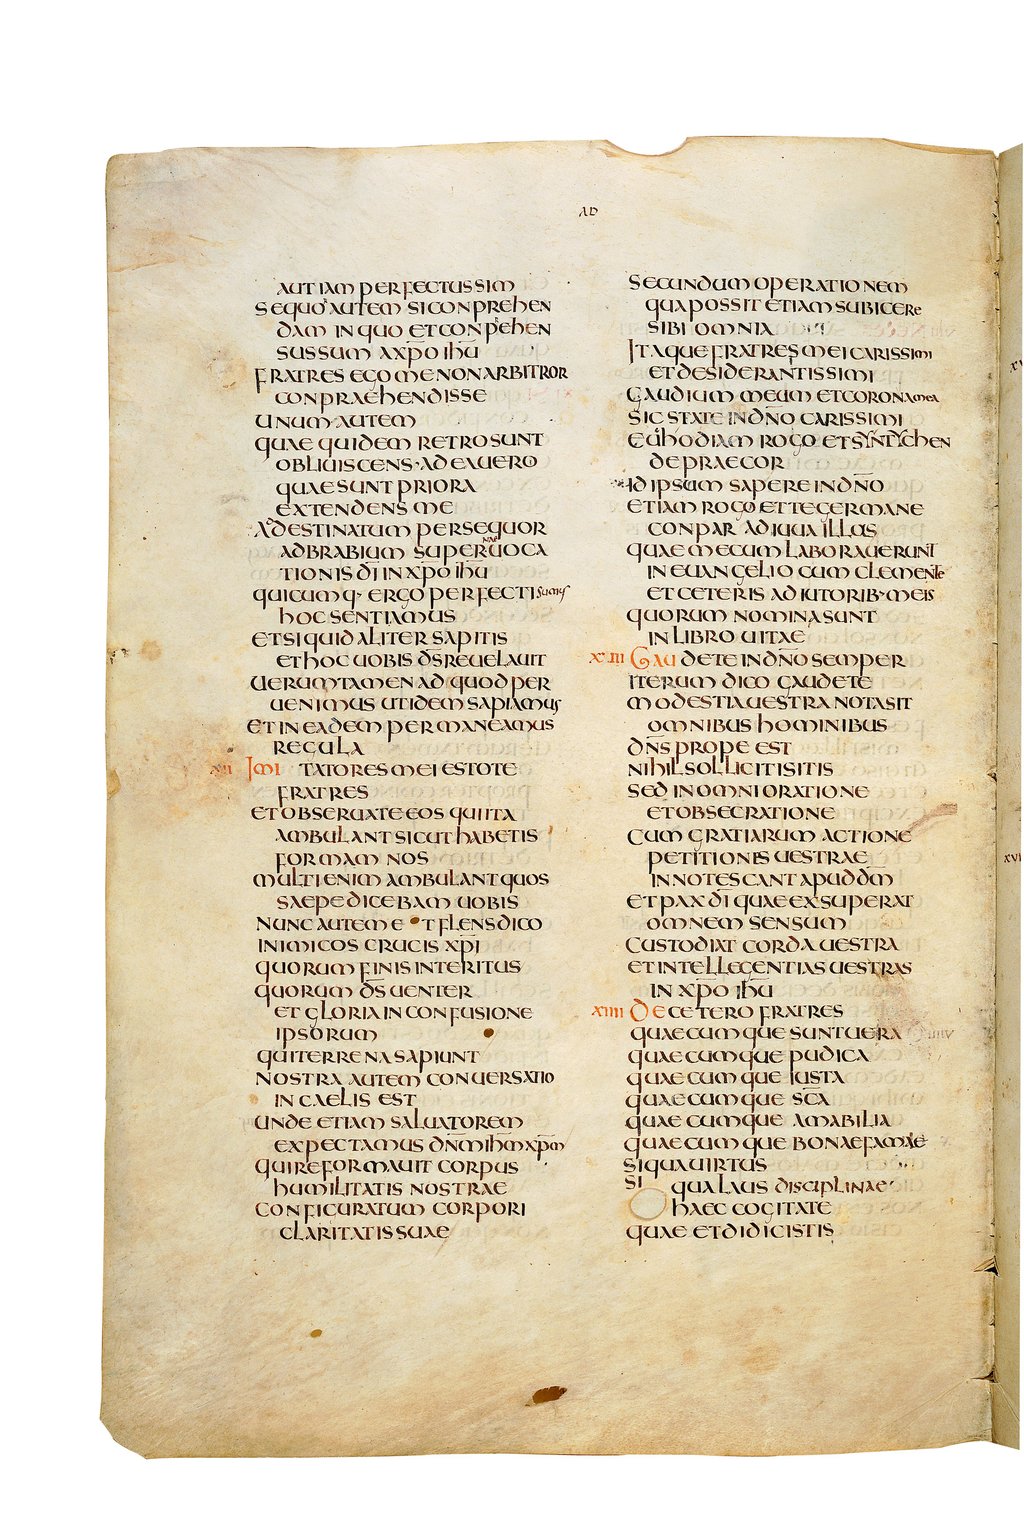 AD
AUT IAM PERFECTUS SIM
SEQUOR AUTEM SI CONPREHEN
DAM IN QUO ET CONPREHEN
SUS SUM A XP̅O IHU̅
FRATRES EGO ME NON ARBITROR
CONPRAEHENDISSE
UNUM AUTEM
QUAE QUIDEM RETRO SUNT
OBLIUISCENS· AD EA UERO
QUAE SUNT PRIORA
EXTENDENS ME
AD DESTINATUM PERSEQUOR
AD BRABIUM SUPERNAE UOCA
TIONIS DI̅ IN XP̅O IHU̅
QUICUMQ· ERGO PERFECTI SUMUS
HOC SENTIAMUS
ET SI QUID ALITER SAPITIS
ET HOC UOBIS DS̅ REUELAUIT
UERUMTAMEN AD QUOD PER
UENIMUS UT IDEM SAPIAMUS
ET IN EADEM PERMANEAMUS
REGULA
XII IMITATORES MEI ESTOTE
FRATRES
ET OBSERUATE EOS QUI ITA
AMBULANT SICUT HABETIS
FORMAM NOS
MULTI ENIM AMBULANT QUOS
SAEPE DICEBAM UOBIS
NUNC AUTEM E T FLENS DICO
INIMICOS CRUCIS XP̅I
QUORUM FINIS INTERITUS
QUORUM DS̅ UENTER
ET GLORIA IN CONFUSIONE
IPSORUM
QUI TERRENA SAPIUNT
NOSTRA AUTEM CONUERSATIO
IN CAELIS EST
UNDE ETIAM SALUATOREM
EXPECTAMUS DN̅M IHM̅ XPM̅
QUI REFORMAUIT CORPUS
HUMILITATIS NOSTRAE
CONFIGURATUM CORPORI
CLARITATIS SUAE
SECUNDUM OPERATIONEM
QUA POSSIT ETIAM SUBICERE
SIBI OMNIA
ITAQUE FRATRES MEI CARISSIMI
ET DESIDERANTISSIMI
GAUDIUM MEUM ET CORONA MEA
SIC STATE IN DN̅O CARISSIMI
EUHODIAM ROGO ET SYNTYCHEN
DEPRAECOR
ID IPSUM SAPERE IN DN̅O
ETIAM ROGO ET TE GERMANE
CONPAR ADIUUA ILLAS
QUAE MECUM LABORAUERUNT
IN EUANGELIO CUM CLEMENTE
ET CETERIS ADIUTORIB· MEIS
QUORUM NOMINA SUNT
IN LIBRO UITAE
XIII GAUDETE IN DN̅O SEMPER
ITERUM DICO GAUDETE
MODESTIA UESTRA NOTA SIT
OMNIBUS HOMINIBUS
DN̅S PROPE EST
NIHIL SOLLICITI SITIS
SED IN OMNI ORATIONE
ET OBSECRATIONE
CUM GRATIARUM ACTIONE
PETITIONES UESTRAE
INNOTESCANT APUD DM̅
ET PAX DI̅ QUAE EXSUPERAT
OMNEM SENSUM
CUSTODIAT CORDA UESTRA
ET INTELLEGENTIAS UESTRAS
IN XP̅O IHU̅
XIIII DE CETERO FRATRES
QUAECUMQUE SUNT UERA
QUAECUMQUE PUDICA
QUAECUMQUE IUSTA
QUAECUMQUE SC̅A
QUAECUMQUE AMABILIA
QUAECUMQUE BONAE FAMAE
SI QUA UIRTUS
SI QUA LAUS DISCIPLINAE
HAEC COGITATE
QUAE ET DIDICISTIS